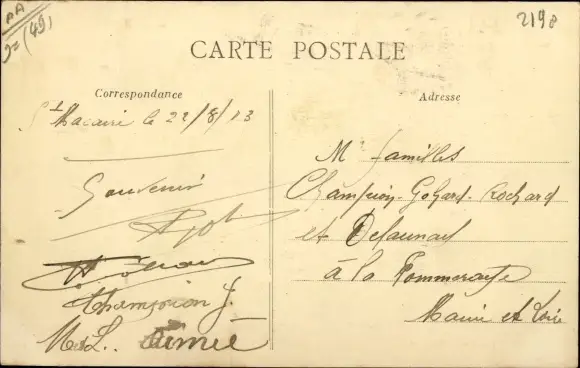 AA
(49)
2198
CARTE POSTALE
Correspondance
Adresse
St Macaire le 22/8/13
Souvenir
Champion J.
M. et L. Aimée
M familles
Champion-Gohard-Rochard
et Delaunay
à la Pommeraye
Maine et Loire